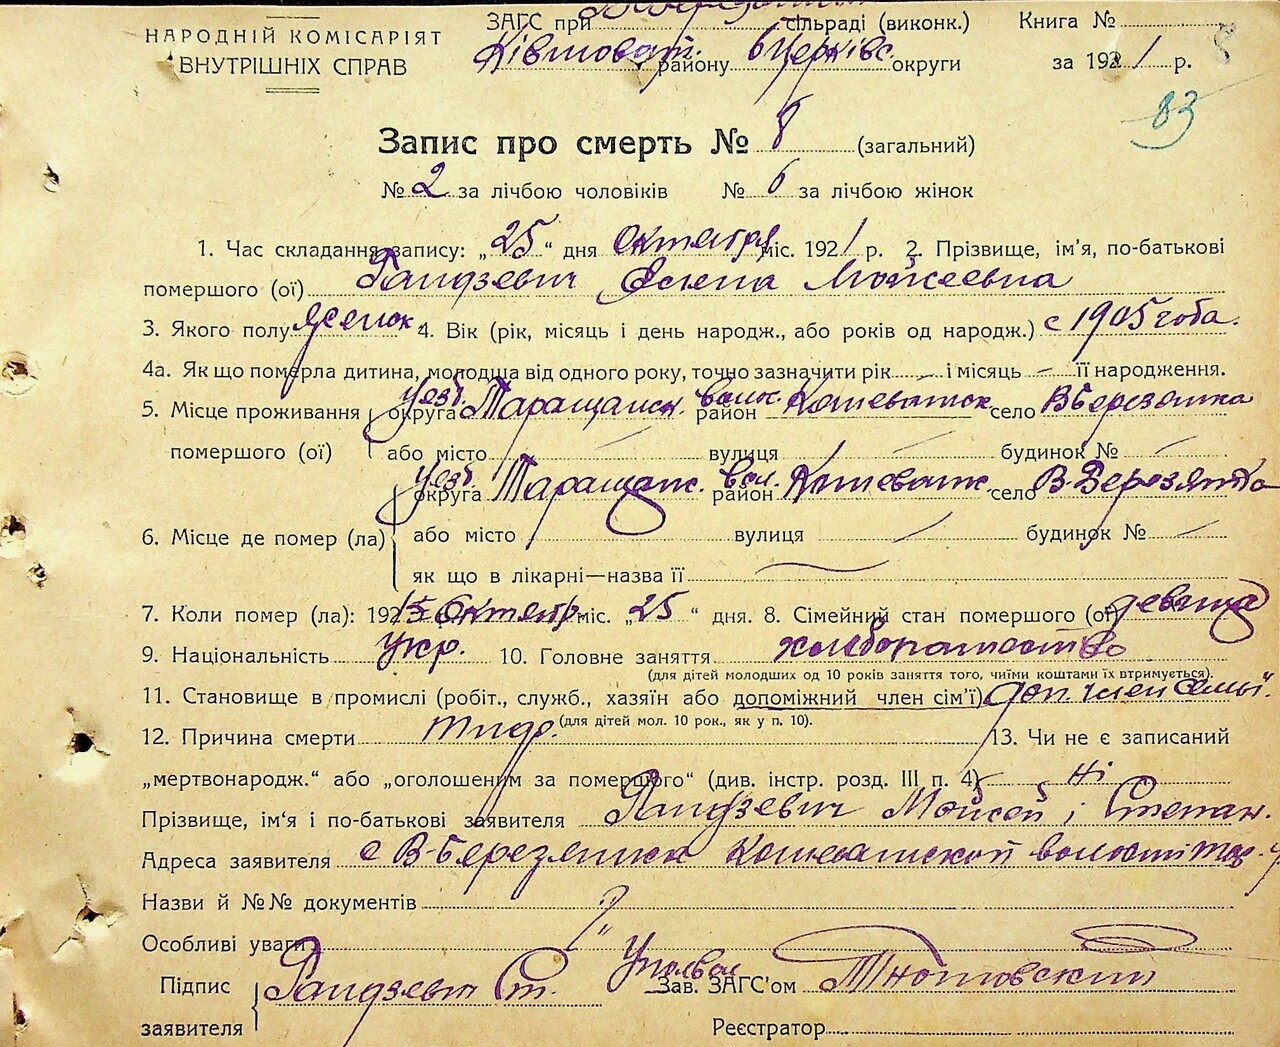 НАРОДНІЙ КОМІСАРІЯТ
ВНУТРІШНІХ СПРАВ
ЗАГС при сільраді (виконк.)
району бЦерківс. округи
Книга №
за 1921 р.
83
Запис про смерть № 8 (загальний)
№ 2 за лічбою чоловіків № 6 за лічбою жінок
1. Час складання запису: „25“ дня Октября міс. 1921 р. 2. Прізвище, ім’я, по-батькові
помершого (ої) Гандзевич Елена Мойсеевна
3. Якого полу женск. 4. Вік (рік, місяць і день народж., або років од народж.) с 1905 года.
4а. Як що померла дитина, молодша від одного року, точно зазначити рік — і місяць — її народження.
5. Місце проживання округа уезд. Таращанск. район волос. Кошеватск село В Березянка
помершого (ої) або місто вулиця будинок №
округа уезд. Таращанс. район вол. Кошеватск. село В-Березянка
6. Місце де помер (ла) або місто вулиця будинок №
як що в лікарні—назва її
7. Коли помер (ла): 1921 Октябр. міс. „25“ дня. 8. Сімейний стан помершого (ої) девица
9. Національність укр. 10. Головне заняття хлеборобство
(для дітей молодших од 10 років заняття того, чиїми коштами їх втримується).
11. Становище в промислі (робіт., служб., хазяїн або допоміжний член сім’ї) доп. член семьи.
(для дітей мол. 10 рок., як у п. 10).
12. Причина смерти тиф. 13. Чи не є записаний
„мертвонародж.“ або „оголошеним за помершого“ (див. інстр. розд. III п. 4) ні
Прізвище, ім‘я і по-батькові заявителя Гандзевич Мойсей і Степан.
Адреса заявителя с В-Березянка Кошеватской волости Тар. у
Назви й №№ документів
Особливі уваги
Підпис Гандзевич Ст. Зав. ЗАГС’ом
заявителя Реєстратор